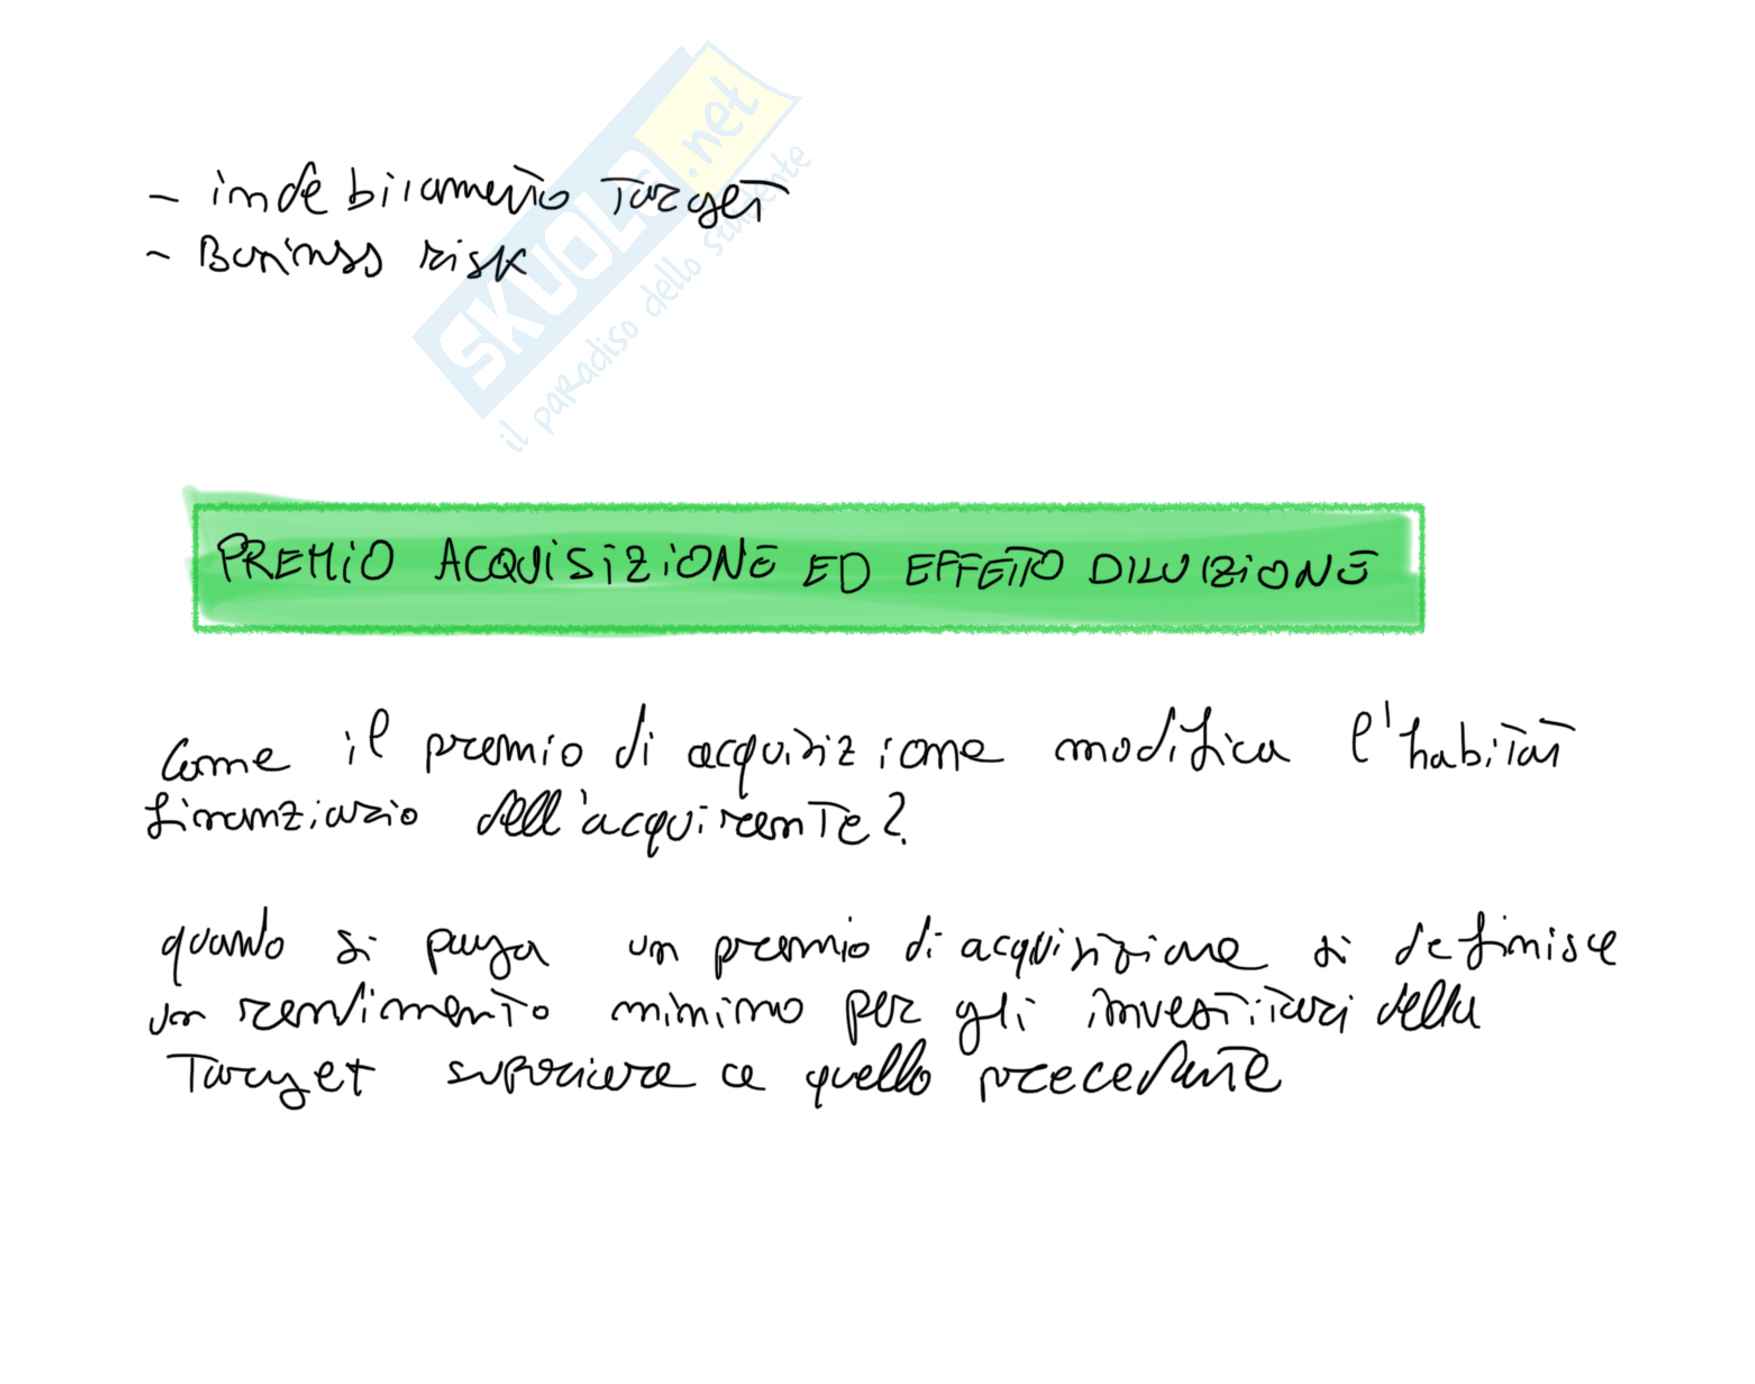 - indebitamento Target
- Business risk
SKUOLA.net
il paradiso dello studente
PREMIO ACQUISIZIONE ED EFFETTO DILUIZIONE
Come il premio di acquisizione modifica l'habitat
finanziario dell'acquirente?
quando si paga un premio di acquisizione si definisce
un rendimento minimo per gli investitori della
Target superiore a quello precedente